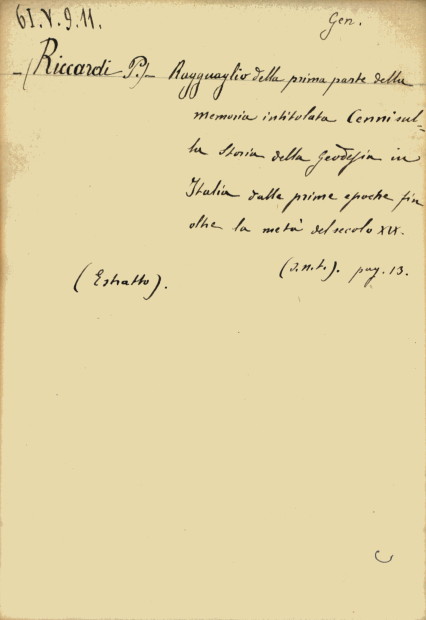 61.V.9.11.
Gen.
-(Riccardi P.)- Ragguaglio della prima parte della
memoria intitolata Cenni sul-
la Storia della Geodesia in
Italia dalle prime epoche fin
oltre la metà del secolo XIX.
(Estratto). (s.n.t.). pag. 13.